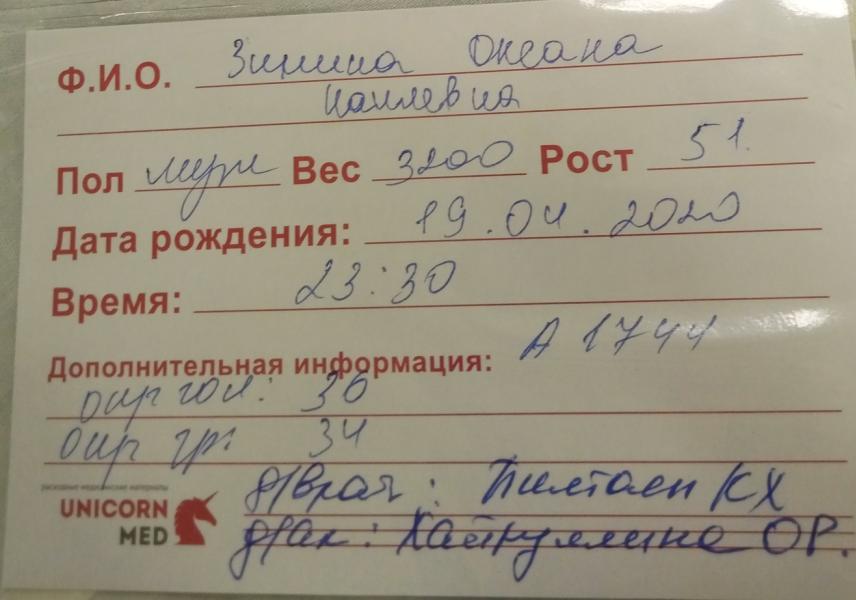 Ф.И.О. Зинина Оксана
Наилевна
Пол муж Вес 3200 Рост 51.
Дата рождения: 19.04.2020
Время: 23:30
Дополнительная информация: А 1744
окр гол: 36
окр гр: 34
расходные медицинские материалы
UNICORN
MED
д/врач: КХ
д/ак: Хайруллина ОР.